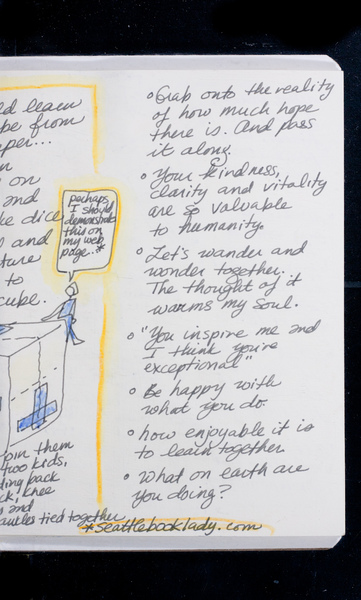 ld learn
be from
per...
n
on
and
ke dice,
l and
ture
to
cube.
perhaps
I should
demonstrate
this on
my web
page..*
pin them
too kids,
ding back
ck, knee
s and
ankles tied together
• Grab onto the reality
of how much hope
there is. And pass
it along.
• Your kindness,
clarity and vitality
are so valuable
to humanity.
• Let's wander and
wonder together.
The thought of it
warms my soul.
• "You inspire me and
I think you're
exceptional"
• Be happy with
what you do.
• how enjoyable it is
to learn together
• What on earth are
you doing?
*seattlebooklady.com